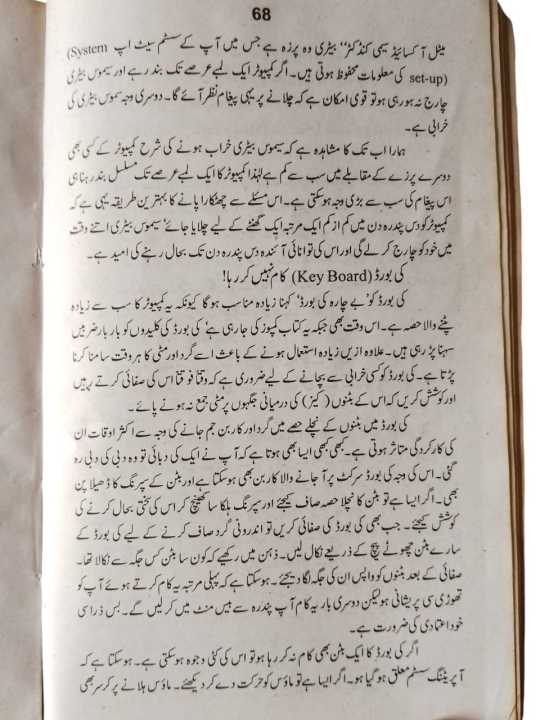 68
میٹل آکسائیڈ سیمی کنڈکٹر'' بیٹری وہ پرزہ ہے جس میں آپ کے سسٹم سیٹ اپ (System
set-up) کی معلومات محفوظ ہوتی ہیں۔ اگر کمپیوٹر ایک لمبے عرصے تک بند رہے اور سیموس بیٹری
چارج نہ ہو رہی ہو تو قوی امکان ہے کہ چلانے پر یہی پیغام نظر آئے گا۔ دوسری وجہ سموس بیٹری کی
خرابی ہے۔
ہمارا اب تک کا مشاہدہ ہے کہ سیموس بیٹری خراب ہونے کی شرح کمپیوٹر کے کسی بھی
دوسرے پرزے کے مقابلے میں سب سے کم ہے لہٰذا کمپیوٹر کا ایک لمبے عرصے تک مسلسل بند رہنا ہی
اس پیغام کی سب سے بڑی وجہ ہوسکتی ہے۔ اس مسئلے سے چھٹکارا پانے کا بہترین طریقہ یہی ہے کہ
کمپیوٹر کو دس پندرہ دن میں کم از کم ایک مرتبہ ایک گھنٹے کے لیے چلایا جائے' سیموس بیٹری اتنے وقت
میں خود کو چارج کر لے گی اور اس کی توانائی آئندہ دس پندرہ دن تک بحال رہنے کی امید ہے۔
کی بورڈ (Key Board) کام نہیں کر رہا!
کی بورڈ کو 'بے چارہ کی بورڈ' کہنا زیادہ مناسب ہوگا کیونکہ یہ کمپیوٹر کا سب سے زیادہ
پٹنے والا حصہ ہے۔ اس وقت بھی جبکہ یہ کتاب کمپوز کی جا رہی ہے' کی بورڈ کی کلیدوں کو بار بار ضربیں
سہنا پڑ رہی ہیں۔ علاوہ ازیں زیادہ استعمال ہونے کے باعث اسے گرد اور مٹی کا ہر وقت سامنا کرنا
پڑتا ہے۔ کی بورڈ کو کسی خرابی سے بچانے کے لیے ضروری ہے کہ وقتاً فوقتاً اس کی صفائی کرتے رہیں
اور کوشش کریں کہ اس کے بٹنوں (کیز) کی درمیانی جگہوں پر مٹی جمع نہ ہونے پائے۔
کی بورڈ میں بٹنوں کے نچلے حصے میں گرد اور کاربن جم جانے کی وجہ سے اکثر اوقات ان
کی کارکردگی متاثر ہوتی ہے۔ کبھی کبھی ایسا بھی ہوتا ہے کہ آپ نے ایک کی دبائی تو وہ دبی کی دبی رہ
گئی۔ اس کی وجہ کی بورڈ سرکٹ پر آ جانے والا کاربن بھی ہوسکتا ہے اور بٹن کے سپرنگ کا ڈھیلا پن
بھی۔ اگر ایسا ہے تو بٹن کا نچلا حصہ صاف کیجئے اور سپرنگ ہلکا سا کھینچ کر اس کی سختی بحال کرنے کی
کوشش کیجئے۔ جب بھی کی بورڈ کی صفائی کریں تو اندرونی گرد صاف کرنے کے لیے کی بورڈ کے
سارے بٹن چھوٹے پیچ کے ذریعے نکال لیں۔ ذہن میں رکھیے کہ کون سا بٹن کس جگہ سے نکالا تھا۔
صفائی کے بعد بٹنوں کو واپس ان کی جگہ لگا دیجئے۔ ہوسکتا ہے کہ پہلی مرتبہ یہ کام کرتے ہوئے آپ کو
تھوڑی سی پریشانی ہو لیکن دوسری بار یہ کام آپ پندرہ سے بیس منٹ میں کر لیں گے۔ بس ذرا سی
خود اعتمادی کی ضرورت ہے۔
اگر کی بورڈ کا ایک بٹن بھی کام نہ کر رہا ہو تو اس کی کئی وجوہ ہوسکتی ہے۔ ہوسکتا ہے کہ
آپریٹنگ سسٹم معلق ہو گیا ہو۔ اگر ایسا ہے تو ماؤس کو حرکت دے کر دیکھئے۔ ماؤس ہلانے پر کرسر بھی